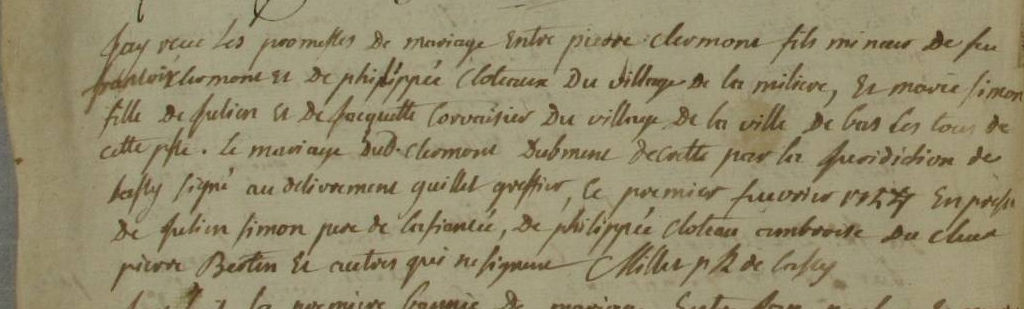 Jay receu Les promesses De mariage Entre pierre clermont fils mineur De feu
francois clermont Et De philippée Cloteaux Du village De la miliere, Et marie simon
fille De Julien Et De Jacquette Corvaisier Du village De la ville De bas Les tous de
cette psse. Le mariage Dud. clermont Dubment decretté par la Juridiction de
Lassy signé au delivrement quillet greffier, Le premier fuevrier En presce
De Julien simon pere de la fiancée, De philippée Cloteau ambroise Du
pierre Bertin Et autres qui ne signent Millet de Lassy
la premiere bannie De mariage Entre